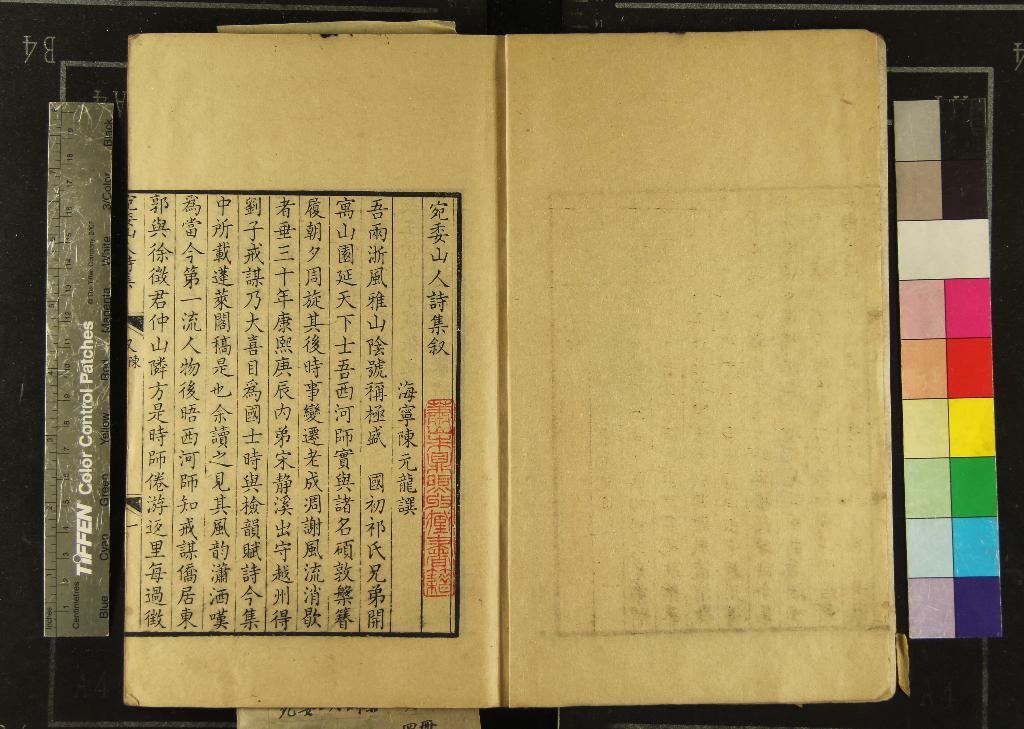 宛委山人詩集叙
海寧陳元龍譔
吾兩浙風雅山陰號稱極盛　國初祁氏兄弟開
寓山園延天下士吾西河師實與諸名碩敦槃簪
履朝夕周旋其後時事變遷老成凋謝風流消歇
者垂三十年康熙庚辰内弟宋靜溪出守越州得
劉子戒謀乃大喜目爲國士時與檢韻賦詩今集
中所載蓬萊閣稿是也余讀之見其風韵瀟洒嘆
爲當今第一流人物後晤西河師知戒謀僑居東
郭與徐徵君仲山隣方是時師倦游返里每過徵
宛委山人詩集
叙陳
一
TIFFEN Color Control Patches
© The Tiffen Company, 2007
Centimetres
Inches
Blue
Cyan
Green
Yellow
Red
Magenta
White
3/Color
Black
B4
A4
四冊